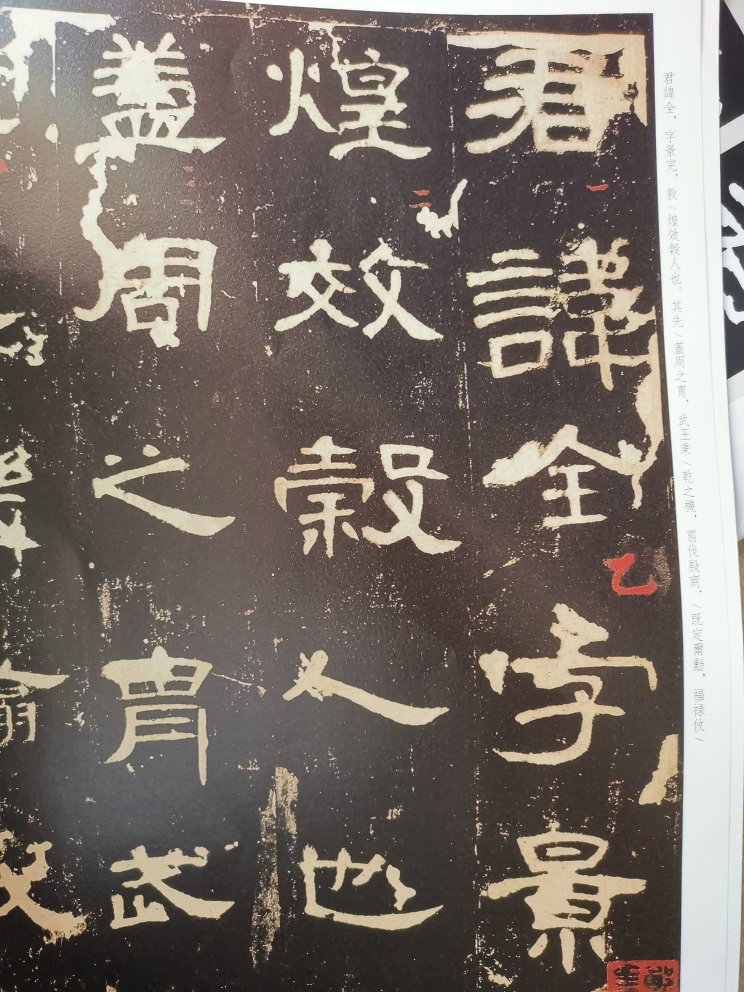 君諱全、字景完,敦\煌效穀人也。其先\蓋周之胄,武王秉\乾之機,翦伐殷商,\既定爾勳,福禄攸\
君諱全字景
一
乙
煌效穀人也
二
蓋周之胄武
三